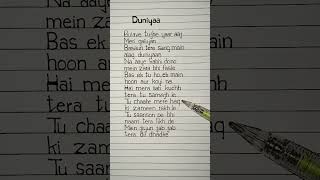 Duniyaa
Bulave tujhe yaar aaj
Meri galiyan
Basaun tere sang main
alag duniyaan
Na aaye kabhi dono
mein zara bhi fasle
Bas ek tu ho, ek main
hoon aur koi na
Hai mera sab kuchh
tera tu samajh le
Tu chaahe mere haq
ki zameen rakh le
Tu saanson pe bhi
naam tera likh de
Main jiyun jab jab
tera dil dhadke